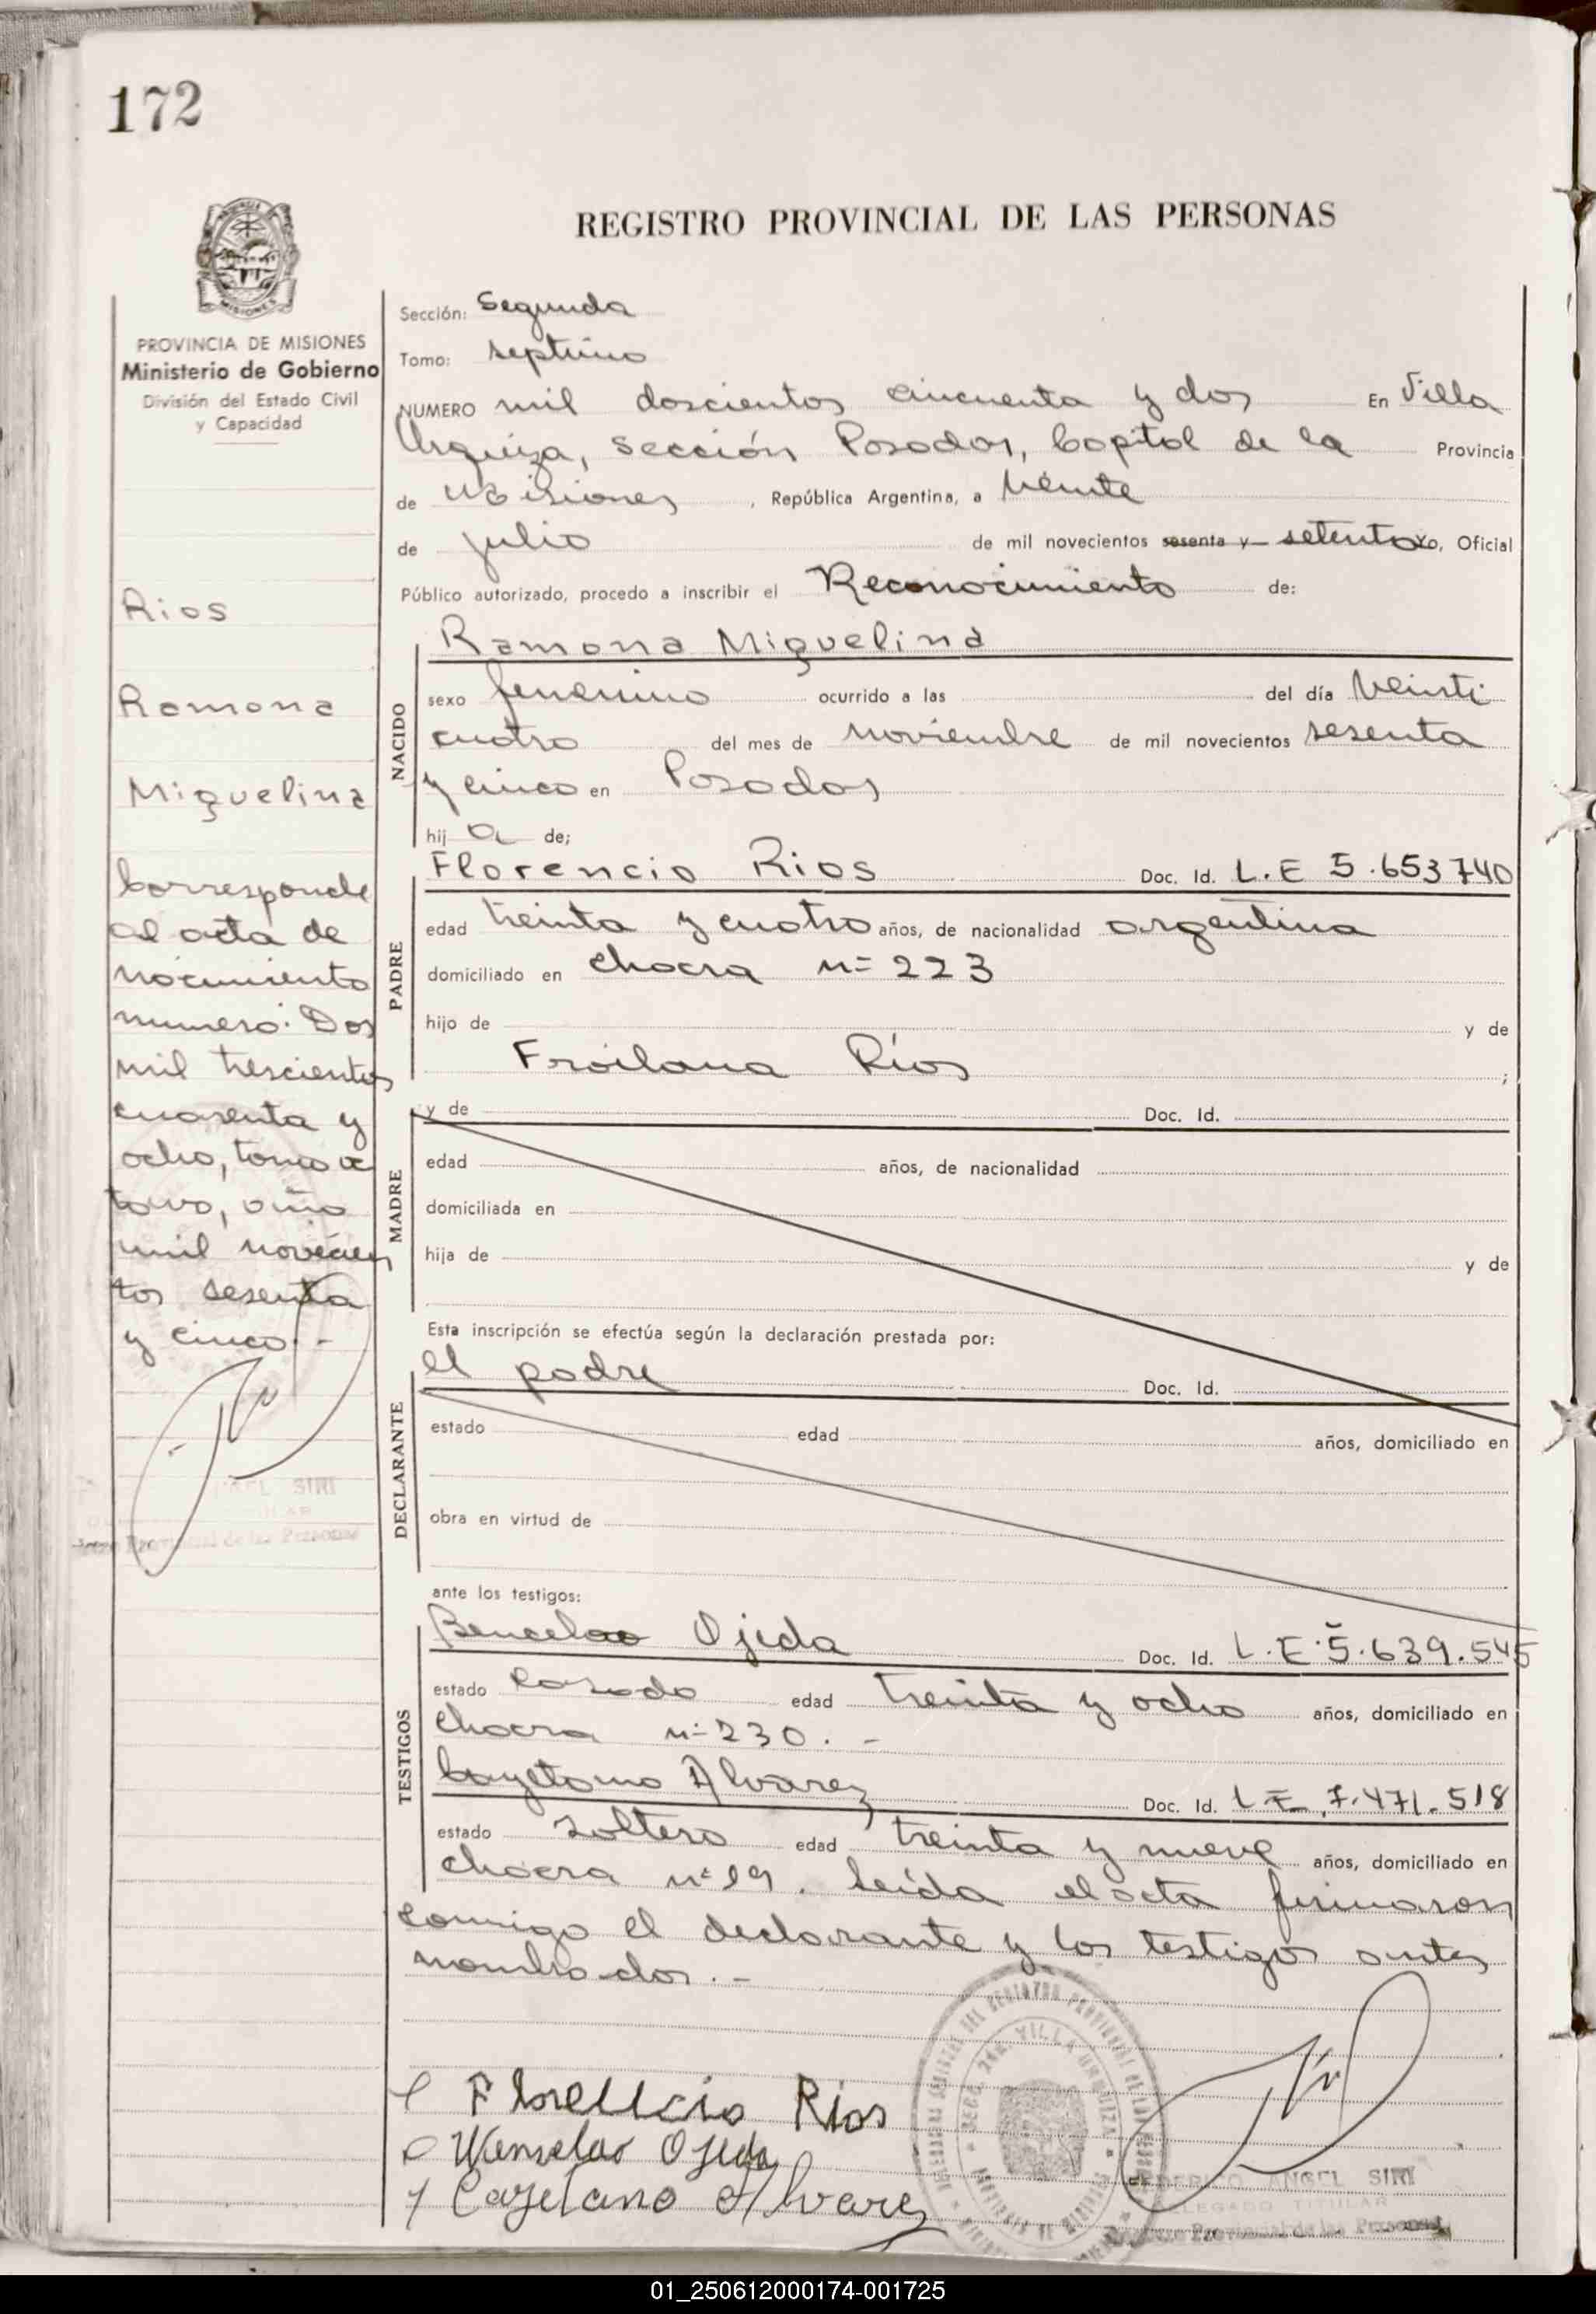 172
REGISTRO PROVINCIAL DE LAS PERSONAS
PROVINCIA DE MISIONES
Ministerio de Gobierno
División del Estado Civil
y Capacidad
Rios
Ramona
Miguelina
Corresponde
al acta de
nacimiento
numero: Dos
mil trescientos
cuarenta y
ocho, tomo oc
tavo, año
mil novecien
tos sesenta
y cinco.-
SIRI
Provincial de las Personas
Sección: Segunda
Tomo: septimo
NUMERO mil doscientos cincuenta y dos En Villa
Urquiza, sección Posadas, Capital de la Provincia
de Misiones, República Argentina, a veinte
de julio de mil novecientos sesenta y setenta yo, Oficial
Público autorizado, procedo a inscribir el Reconocimiento de:
NACIDO
Ramona Miguelina
sexo femenino ocurrido a las del día veinti
cuatro del mes de noviembre de mil novecientos sesenta
y cinco en Posadas
hij a de;
PADRE
Florencio Rios Doc. Id. L.E 5.653740
edad treinta y cuatro años, de nacionalidad argentina
domiciliado en chacra n= 223
hijo de y de
Froilana Ríos ;
MADRE
y de Doc. Id.
edad años, de nacionalidad
domiciliada en
hija de y de
Esta inscripción se efectúa según la declaración prestada por:
DECLARANTE
el padre Doc. Id.
estado edad años, domiciliado en
obra en virtud de
ante los testigos:
TESTIGOS
Bencelao Ojeda Doc. Id. L.E.5.639.545
estado casado edad treinta y ocho años, domiciliado en
chacra n=230.-
Cayetano Alvarez Doc. Id. L E 7.471.518
estado soltero edad treinta y nueve años, domiciliado en
chacra n=19. Leída el acta firmaron
conmigo el declarante y los testigos antes
nombrados.-
Florencio Rios
Wenselao Ojeda
Cayetano Alvarez
VILLA URQUIZA
FEDERICO ANGEL SIRI
DELEGADO TITULAR
Provincial de las Personas
01_250612000174-001725